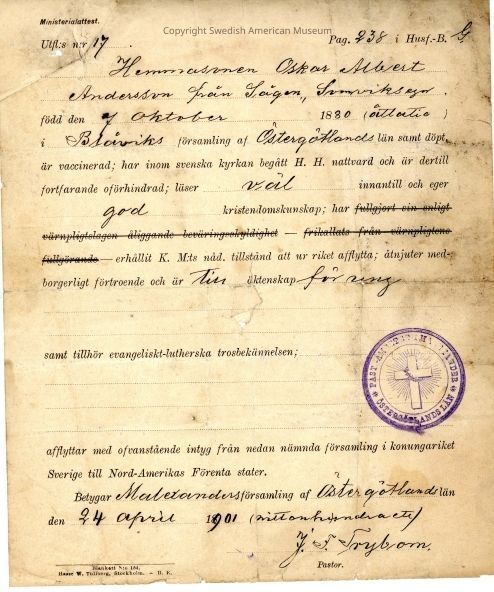 Copyright Swedish American Museum
Ministerialattest.
Utfl:s n:r 17. Pag. 238 i Husf.-B. G
Hemmasonen Oskar Albert
Andersson från Sågen,
född den 7 Oktober 1880 (åttatio)
i Blåviks församling af Östergötlands län samt döpt,
är vaccinerad; har inom svenska kyrkan begått H. H. nattvard och är dertill
fortfarande oförhindrad; läser väl innantill och eger
god kristendomskunskap; har fullgjort sin enligt
värnpligtslagen åliggande beväringsskyldighet — frikallats från värnpligtens
fullgörande — erhållit K. M:ts nåd. tillstånd att ur riket afflytta; åtnjuter med-
borgerligt förtroende och är till äktenskap
samt tillhör evangeliskt-lutherska trosbekännelsen;
PAST. ÖSTERGÖTLANDS LÄN
afflyttar med ofvanstående intyg från nedan nämnda församling i konungariket
Sverige till Nord-Amerikas Förenta stater.
Betygar Malexanders församling af Östergötlands län
den 24 April 1901 (nittonhundraett)
J. T. Trybom.
Pastor.
Blankett N:o 134.
Hasse W. Tullberg, Stockholm. – B. E.